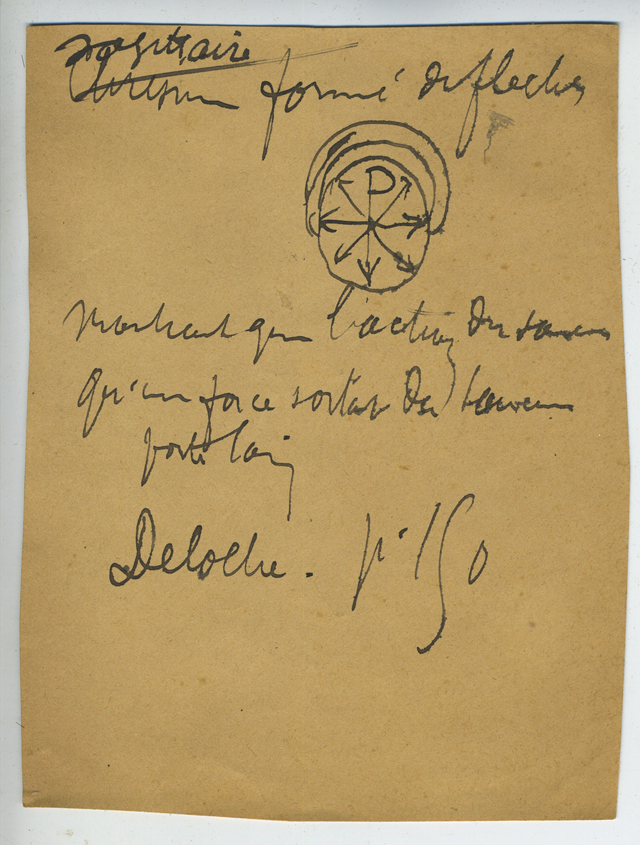 sagittaire
Chrisme formé de fleches
P
Montrant que l'action du sauveur
qu'une force sortant du sauveur
porte loin
Deloche. p. 150